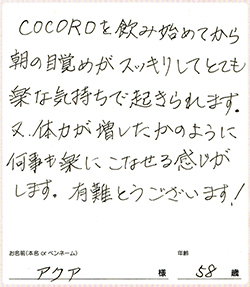 COCOROを飲み始めてから
朝の目覚めがスッキリしてとても
楽な気持ちで起きられます。
又、体力が増したかのように
何事も楽にこなせる感じが
します。有難とうございます!
お名前(本名 or ペンネーム) 年齢
アクア 様 58 歳